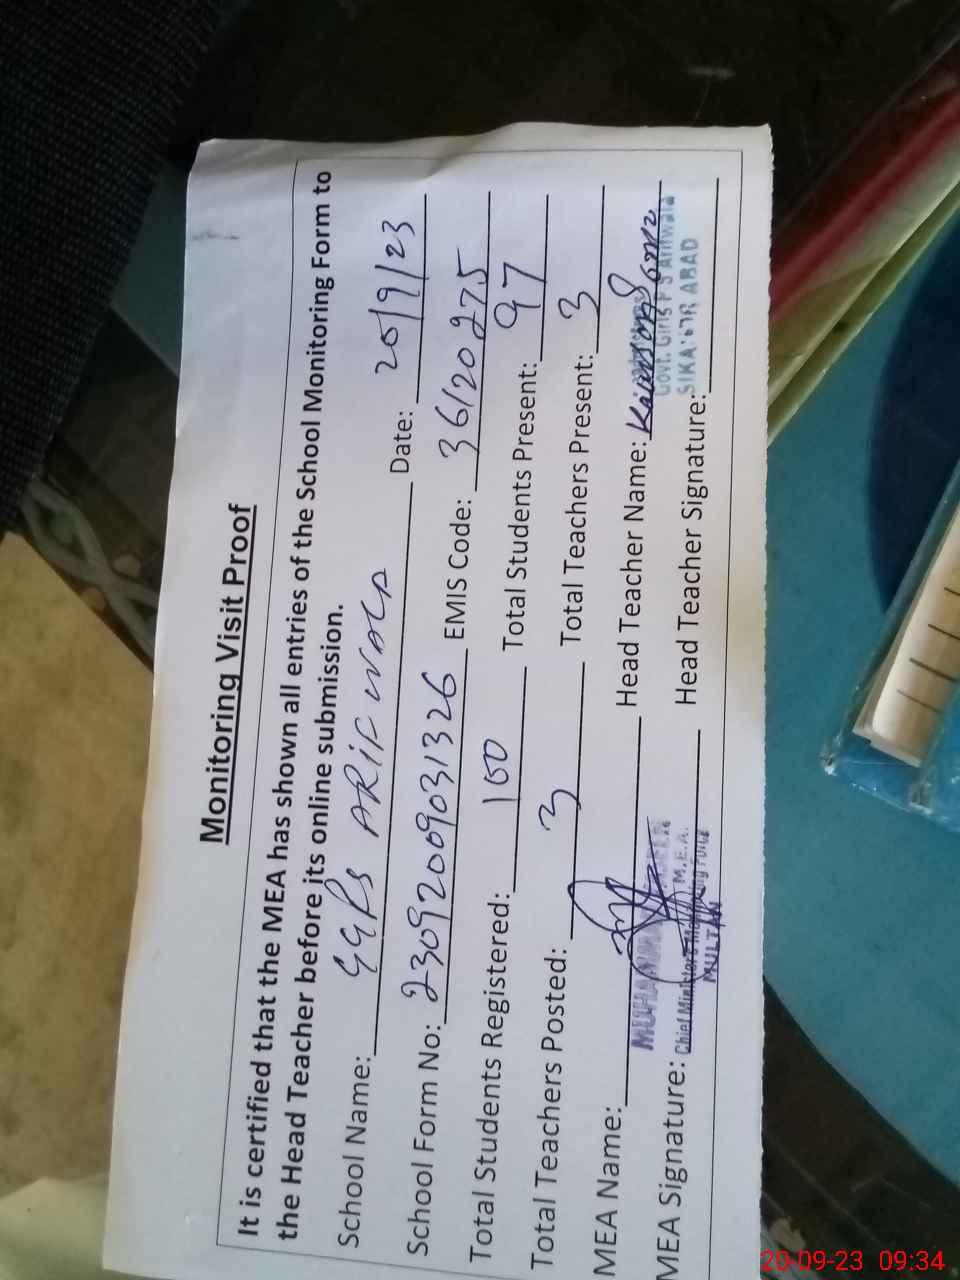 Monitoring Visit Proof
It is certified that the MEA has shown all entries of the School Monitoring Form to
the Head Teacher before its online submission.
School Name: GGPS ARIF WALA Date: 20/9/23
School Form No: 23092009031326 EMIS Code: 36120275
Total Students Registered: 100 Total Students Present: 97
Total Teachers Posted: 3 Total Teachers Present: 3
MEA Name: Head Teacher Name:
MUHAMMAD
Govt. Girls P S Arifwala
MEA Signature: Chief Minister's Monitoring Force M.E.A. Head Teacher Signature:
MULTAN
20-09-23 09:34